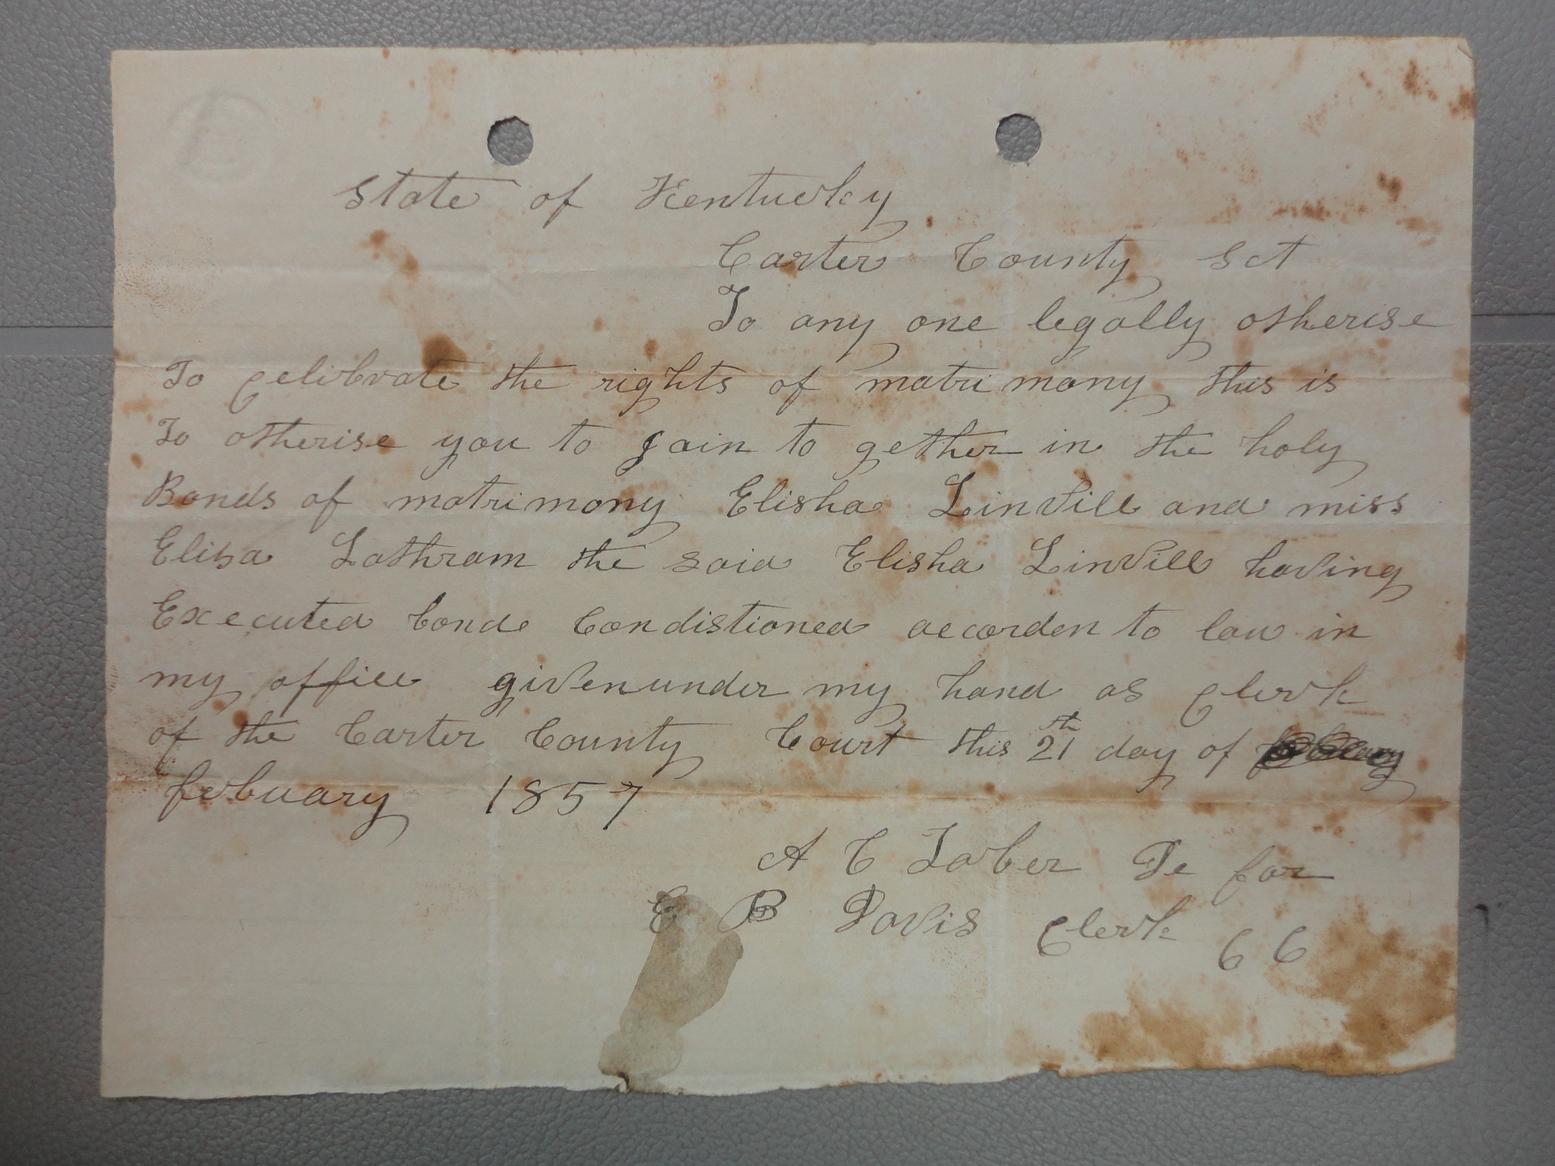 State of Kentucky
Carter County Sct
To any one legally otherise
To celibrate the rights of matrimony this is
To otherise you to join to gether in the holy
Bonds of matrimony Elisha Linvill and miss
Eliza Lathram the said Elisha Linvill having
Executed bond condistioned accorden to law in
my office given under my hand as clerk
of the Carter County Court this 21th day of
febuary 1857
A C Taber De for
E B Davis Clerk CC